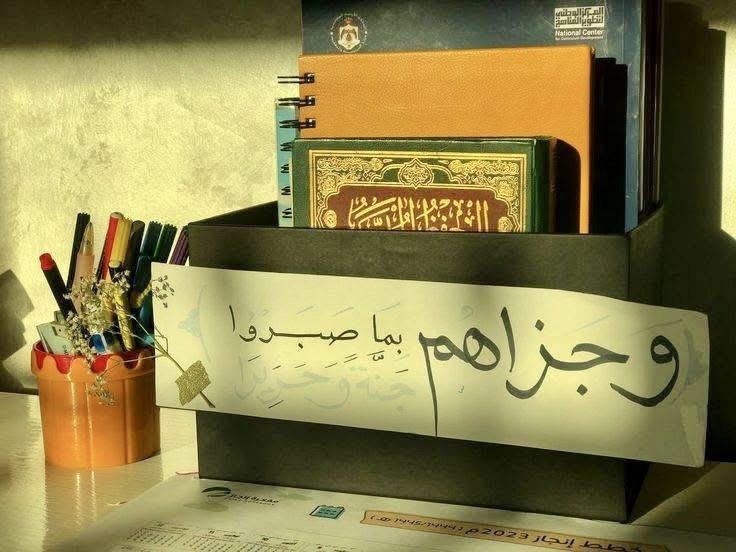 المركز الوطني
لتطوير المناهج
National Center
for Curriculum Development
وجزاهم بما صبروا
جنَّة وَحَرِيرًا
مخطط إنجاز 2023م (1445/1444 هـ)